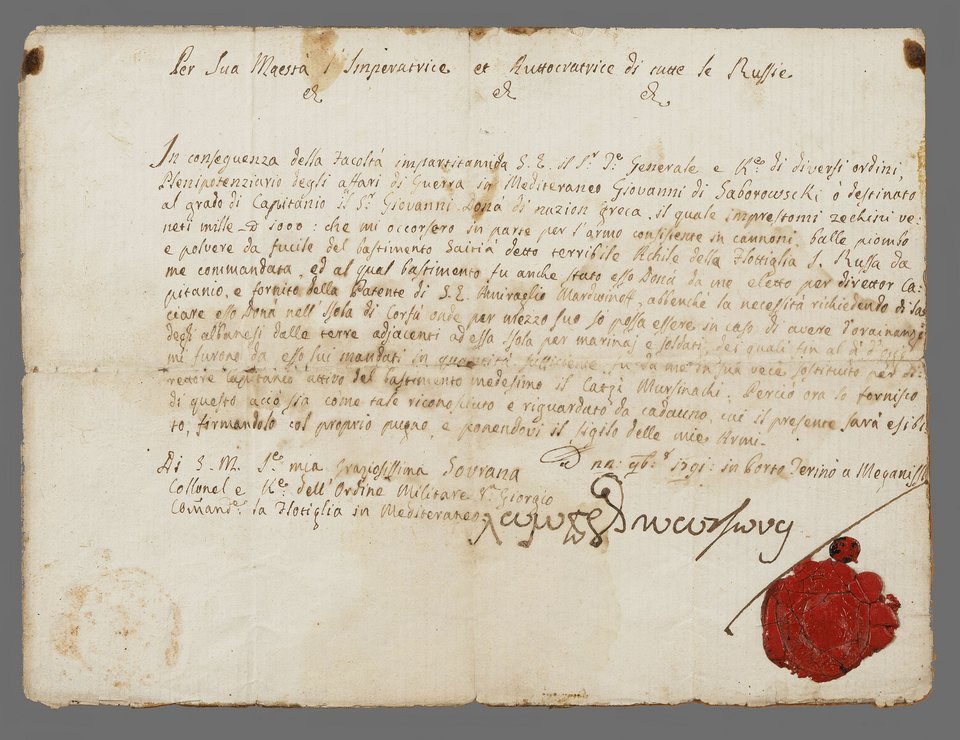 Per Sua Maestà l'Imperatrice et Auttocratrice di tutte le Russie
&c &c &c
In conseguenza della Facoltà impartitami da S. E. il Sr. Te. Generale e Kr. di diversi ordini,
Plenipotenziario degli affari di Guerra in Mediteraneo Giovanni di Saborowscki ò destinato
al grado di Capitanio il Sr. Giovanni Donà di nazion Greca, il quale imprestomi zechini ve=
neti mille 1000: che mi occorsero in parte per l'armo consistente in cannoni, balle piombo
e polvere da fucile del bastimento Saitia detto terribile Achile della Flottiglia I. Russa da
me commandata, ed al qual bastimento fu anche stato esso Donà da me eletto per director Ca=
pitanio, e fornito della Patente di S. E. Amiraglio Mardwinof, abbenchè la necessità richiedendo di las=
ciare esso Donà nell'Isola di Corfù onde per mezzo suo io possa essere in caso di avere
degli albanesi dalle terre adjacenti ad essa Isola per marinaj e soldati, dei quali fin al dì d'oggi
mi furono da esso lui mandati in quantità sufficiente, fu da me in sua vece sostituito per di=
rettore Capitaneo attivo del bastimento medesimo il Cargì Mursinachi. Perciò ora lo fornisco
di questo acciò sia come tale riconosciuto e riguardato da cadauno, cui il presente sarà esibi=
to, formandolo col proprio pugno, e ponendovi il sigilo delle mie Armi.
1791: in Porto Terino a Meganissi
Di S. M. I. mia Graziosissima Sovrana
Collonel e Kr. dell'Ordine Militare Sn. Giorgio
Comande. la Flotiglia in Mediteraneo